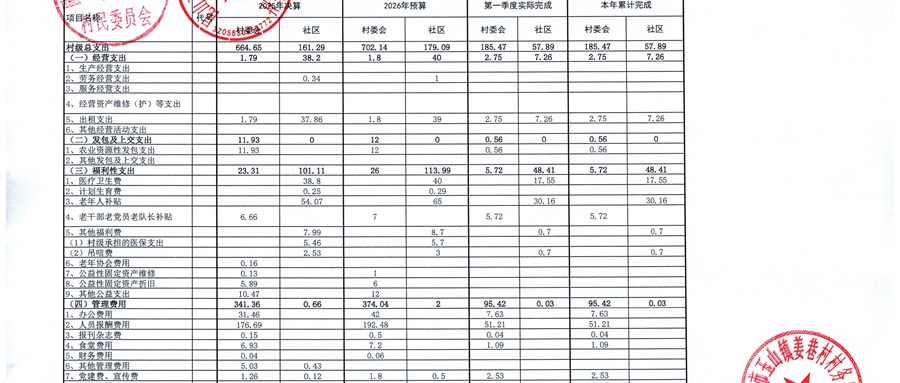 项目名称 代号 2025年决算 2026年预算 第一季度实际完成 本年累计完成
村委会 社区 村委会 社区 村委会 社区 村委会 社区
村民委员会
村级总支出 664.65 161.29 702.14 179.09 185.47 57.89 185.47 57.89
(一)经营支出 1.79 38.2 1.8 40 2.75 7.26 2.75 7.26
1、生产经营支出
2、劳务经营支出 0.34 1
3、服务经营支出
4、经营资产维修(护)等支出
5、出租支出 1.79 37.86 1.8 39 2.75 7.26 2.75 7.26
6、其他经营活动支出
(二)发包及上交支出 11.93 0 12 0 0.56 0 0.56 0
1、农业资源性发包支出 11.93 12 0.56 0.56
2、其他发包及上交支出
(三)福利性支出 23.31 101.11 26 113.99 5.72 48.41 5.72 48.41
1、医疗卫生费 38.8 40 17.55 17.55
2、计划生育费 0.25 0.29
3、老年人补贴 54.07 65 30.16 30.16
4、老干部老党员老队长补贴 6.66 7 5.72 5.72
5、其他福利费 7.99 8.7 0.7 0.7
(1)村级承担的医保支出 5.46 5.7
(2)吊唁费 2.53 3 0.7 0.7
6、老年协会费用 0.16
7、公益性固定资产维修 0.13 1
8、公益性固定资产折旧 5.89 6
9、其他公益支出 10.47 12
(四)管理费用 341.36 0.66 374.04 2 95.42 0.03 95.42 0.03
1、办公费用 31.46 42 7.63 7.63
2、人员报酬费用 176.69 192.48 51.21 51.21
3、报刊杂志费 0.15 0.5 0.04 0.04
4、食堂费用 6.93 7.2 1.09 1.09
5、财务费用 0.04 0.06
6、其他管理费用 5.03 0.43
7、党建费、宣传费 1.26 0.12 1.8 0.5 2.53 2.53
市玉山镇姜巷村村务